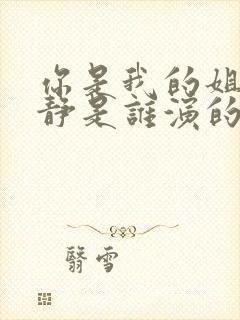 你是我的姐
静是誰演的
翳雪